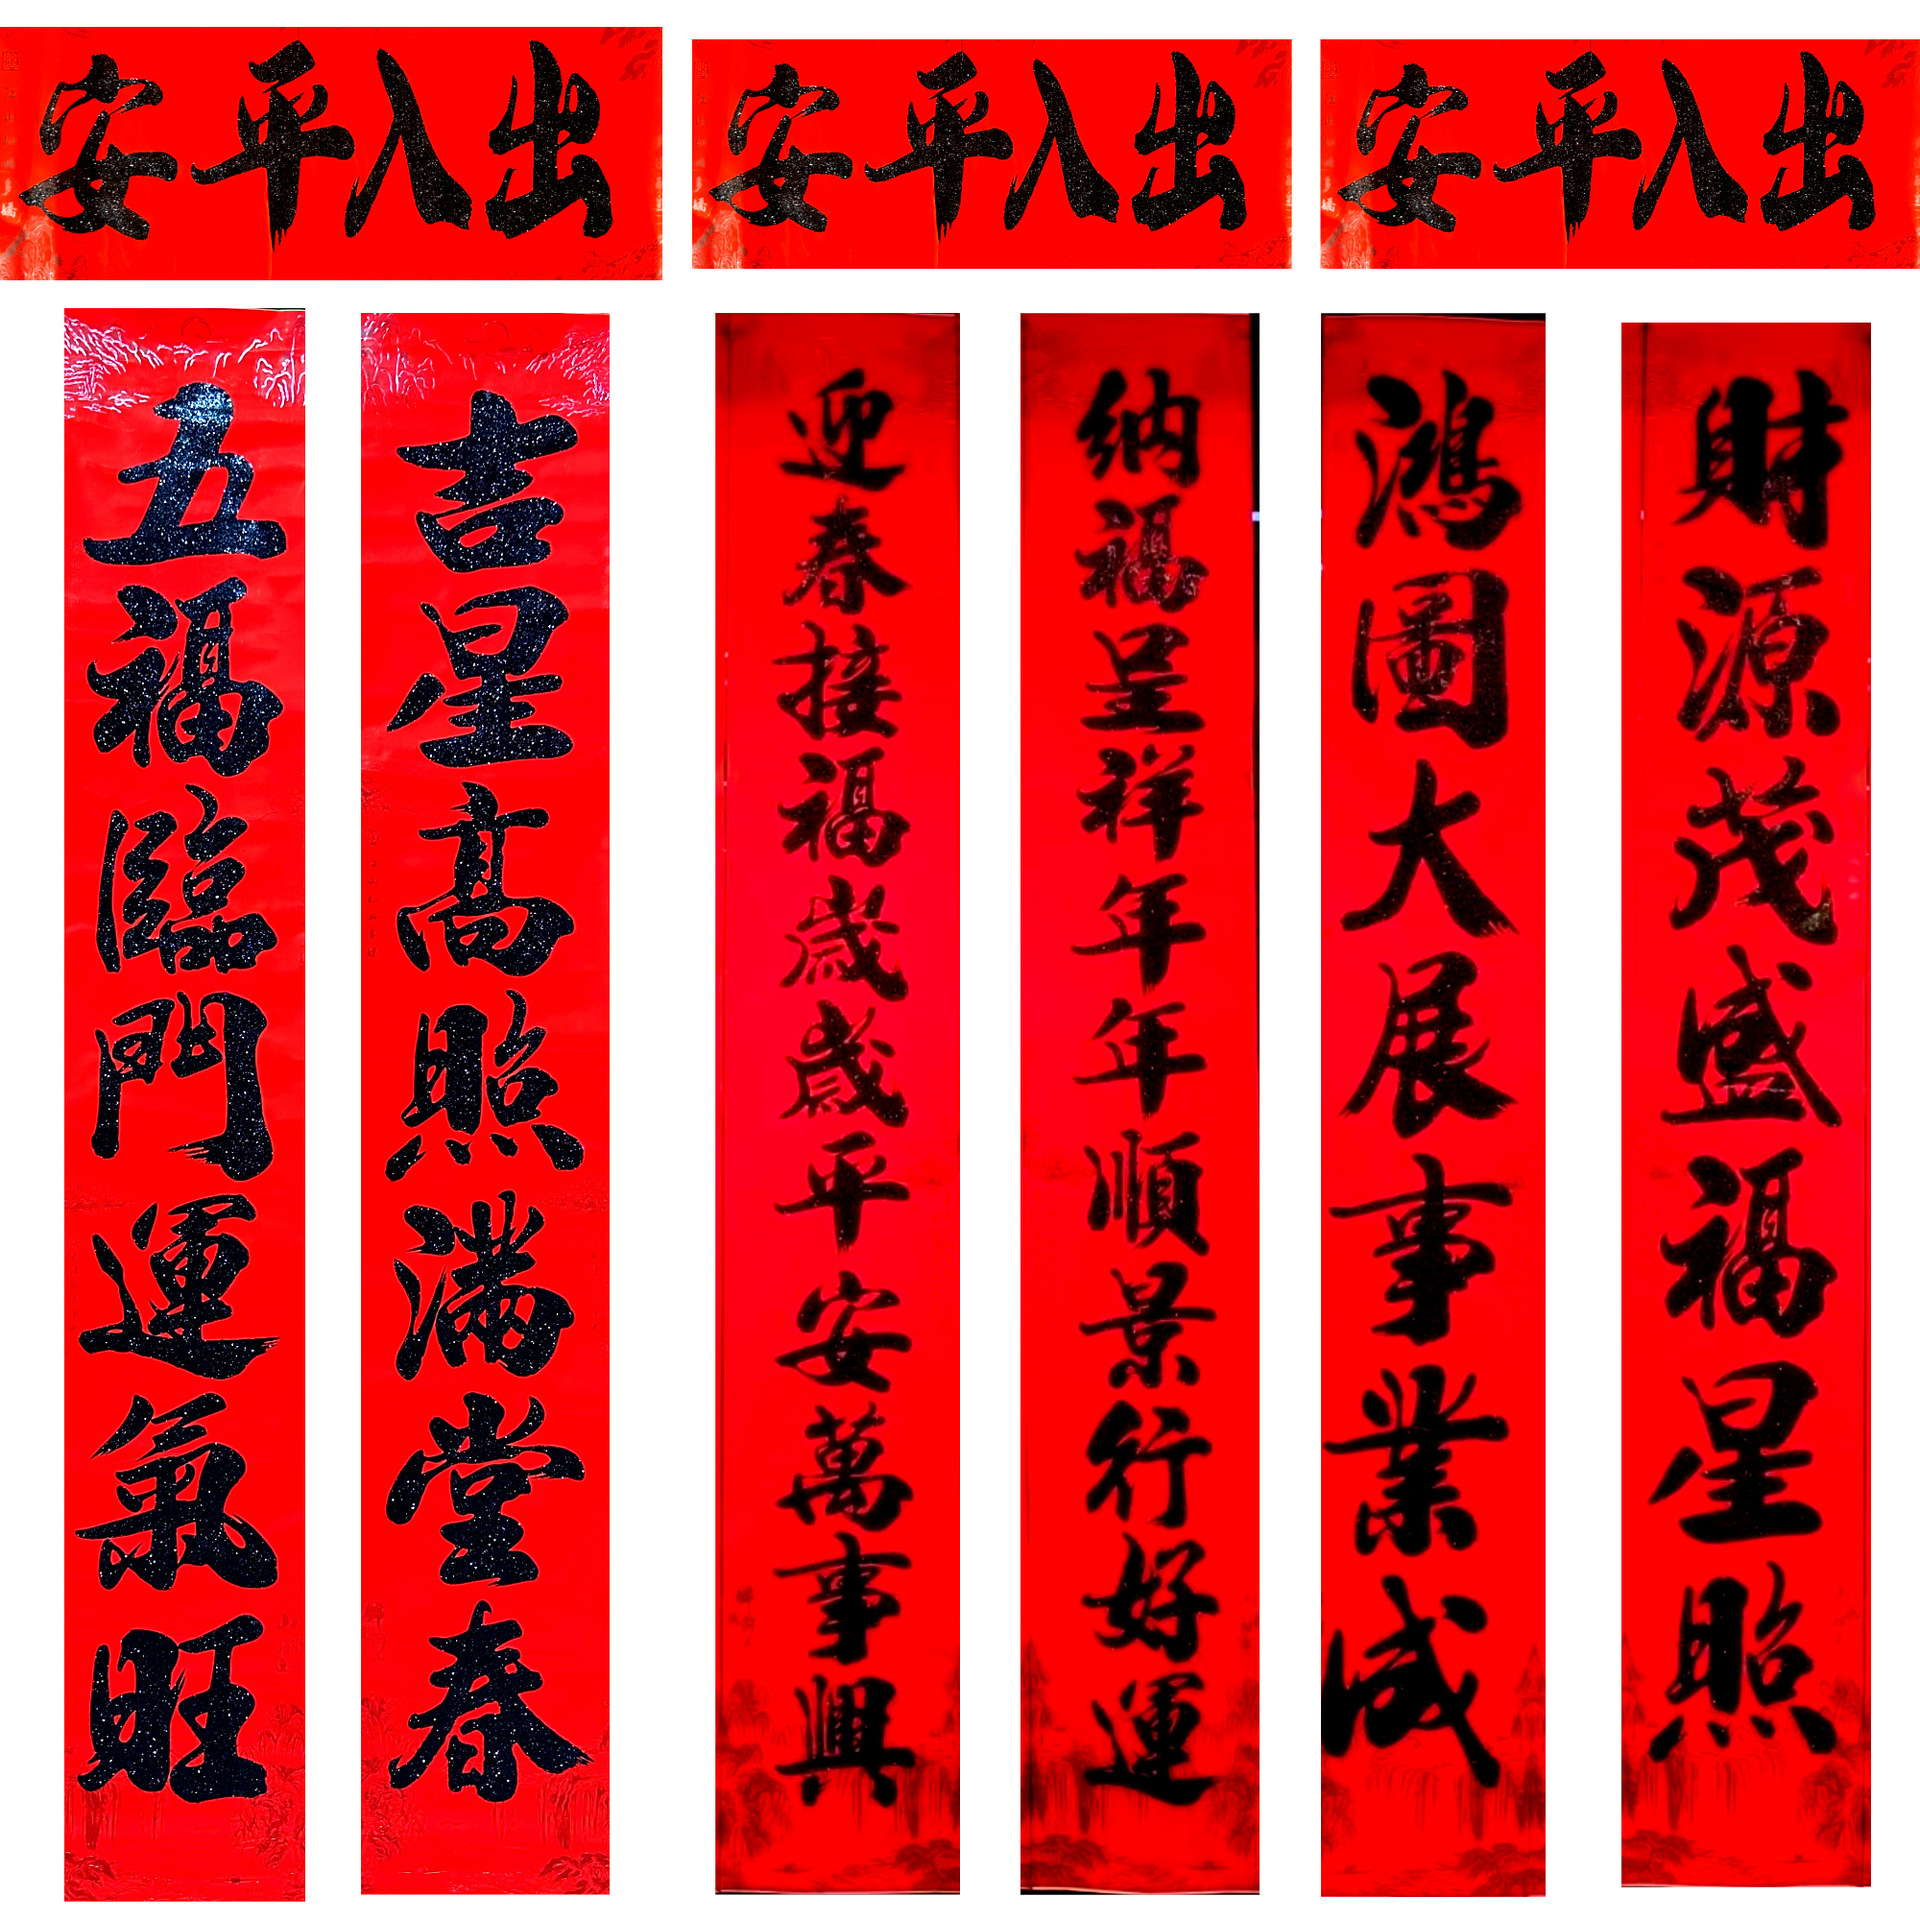 出入平安
出入平安
出入平安
五福臨門運氣旺
吉星高照滿堂春
迎春接福歲歲平安萬事興
納福呈祥年年順景行好運
鴻圖大展事業成
財源茂盛福星照